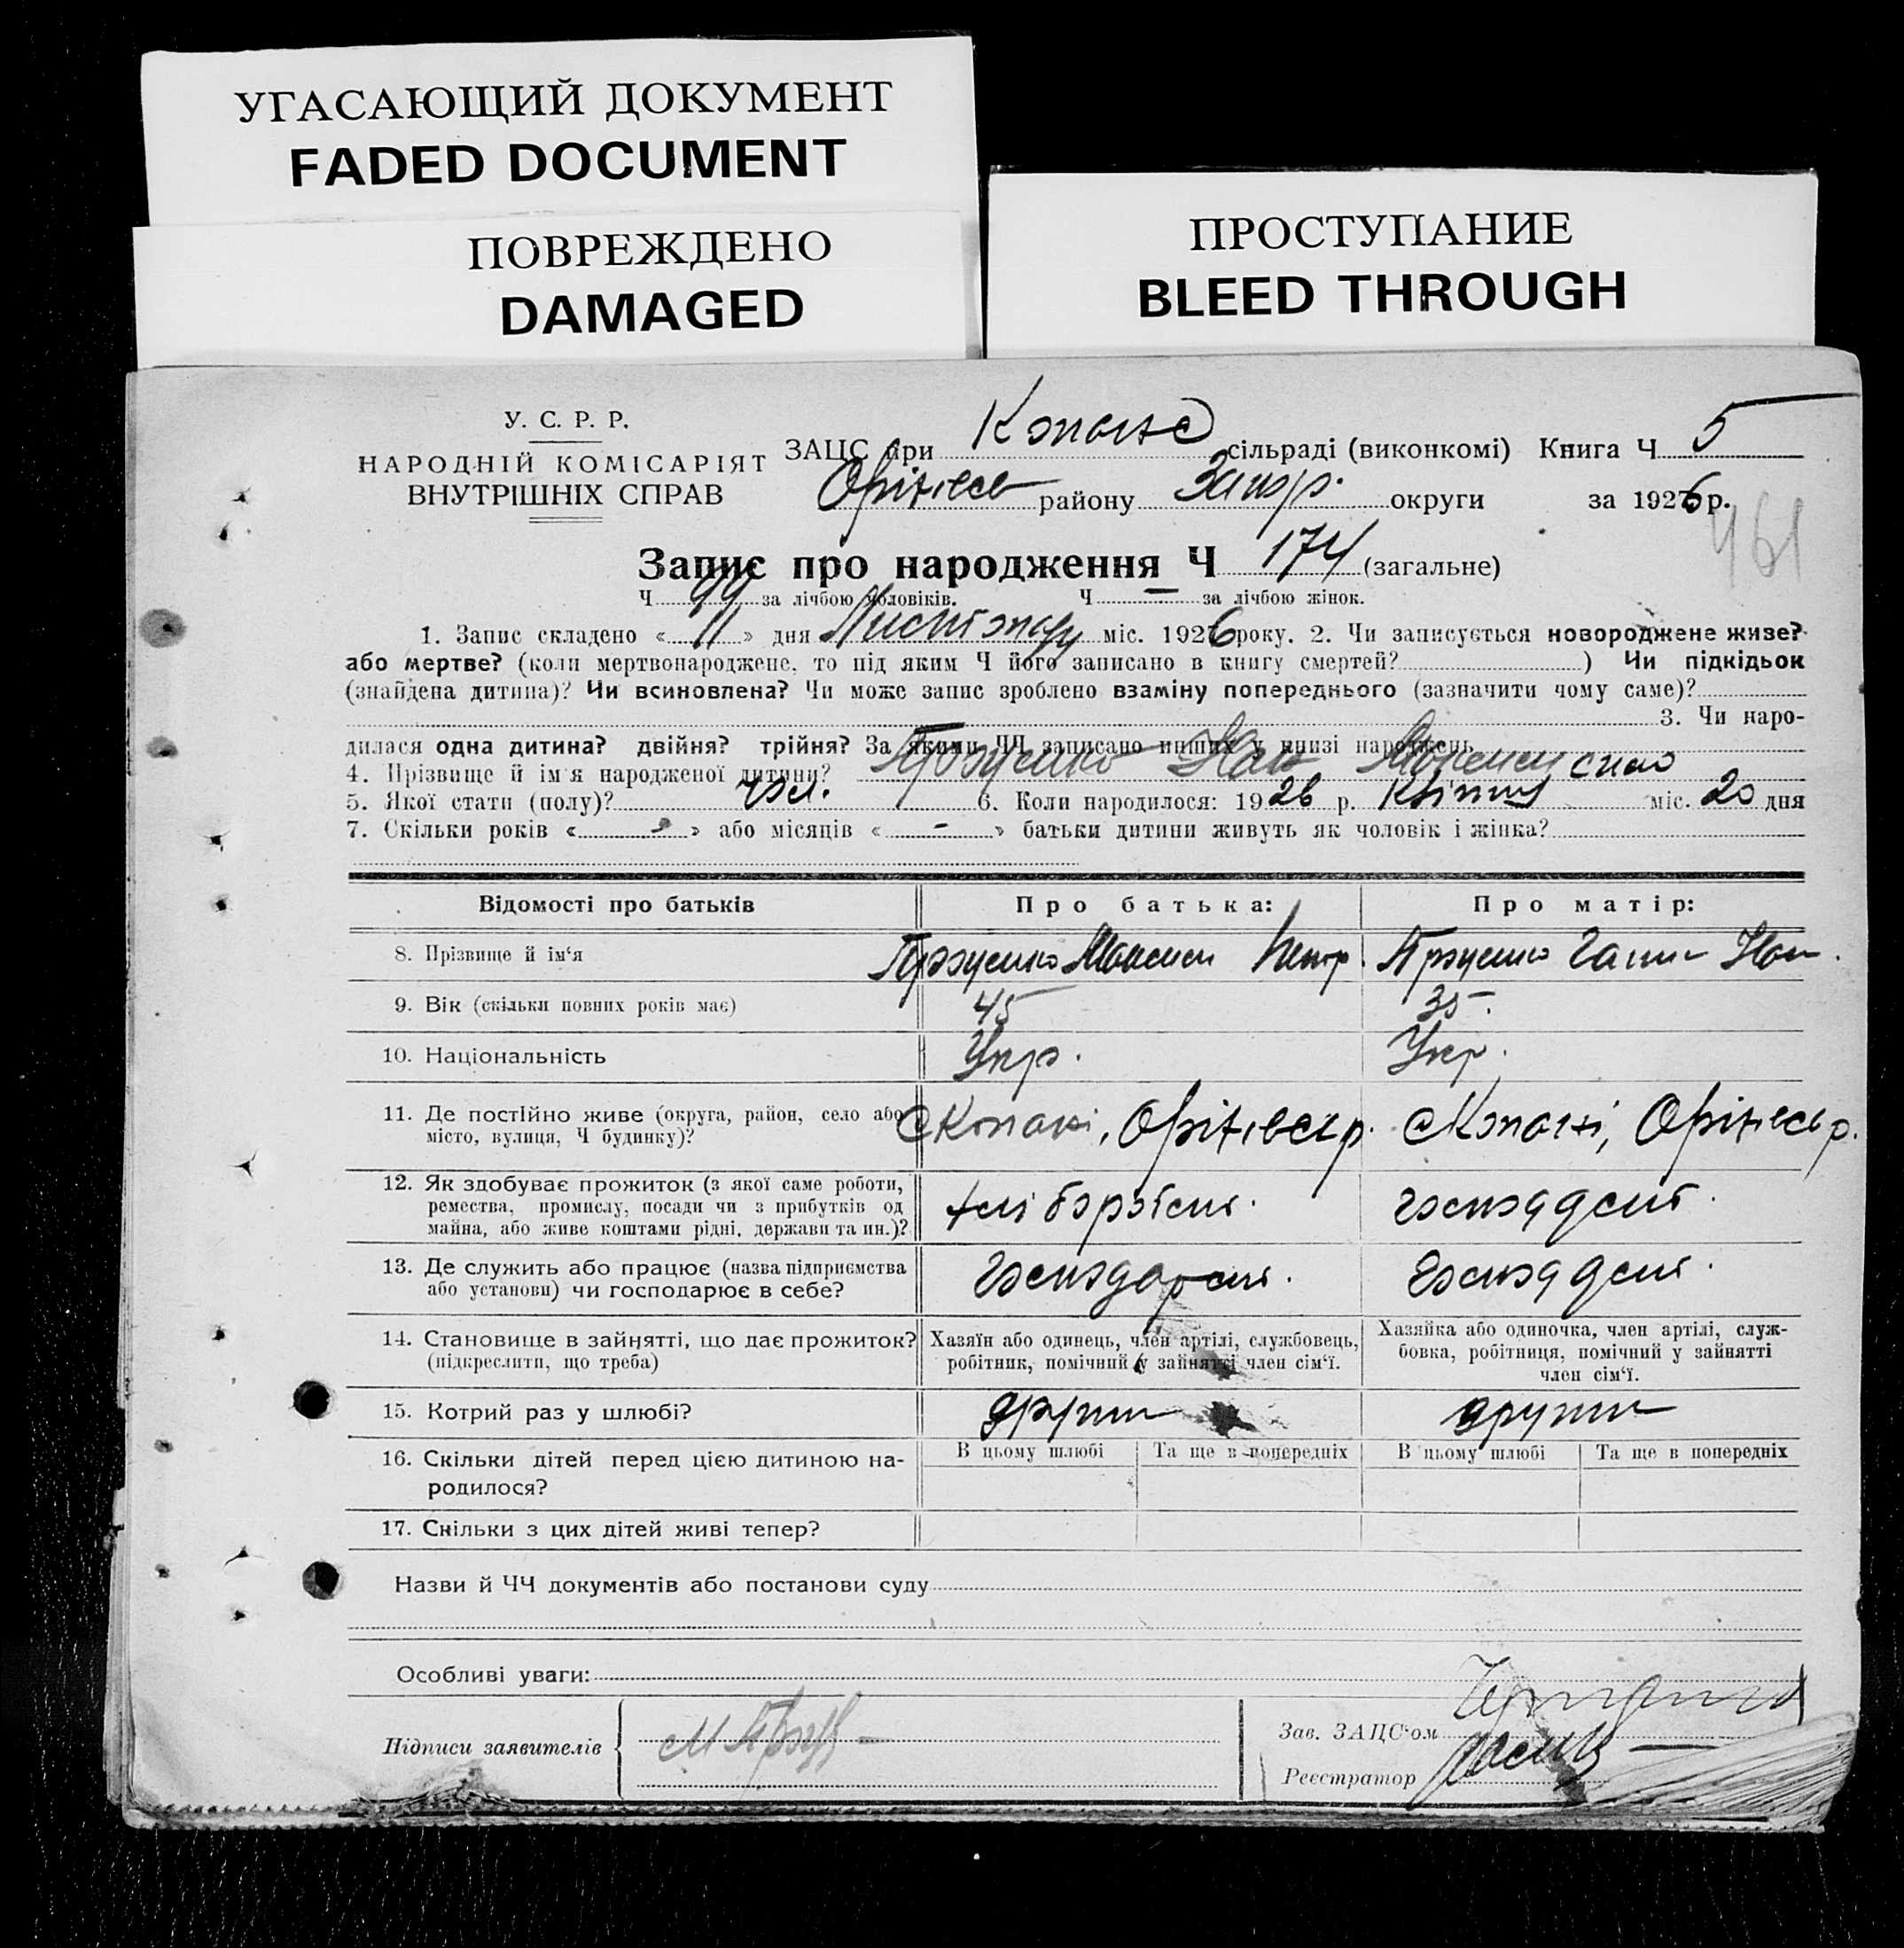 УГАСАЮЩИЙ ДОКУМЕНТ
FADED DOCUMENT
ПОВРЕЖДЕНО
DAMAGED
ПРОСТУПАНИЕ
BLEED THROUGH
У. С. Р. Р.
НАРОДНІЙ КОМІСАРІЯТ
ВНУТРІШНІХ СПРАВ
ЗАЦС при сільраді (виконкомі) Книга Ч 5
району Запор. округи за 1926 р.
461
Запис про народження Ч 174 (загальне)
Ч 99 за лічбою чоловіків. Ч — за лічбою жінок.
1. Запис складено « 11 » дня Листопаду міс. 1926 року. 2. Чи записується новороджене живе?
або мертве? (коли мертвонароджене, то під яким Ч його записано в книгу смертей? ) Чи підкідьок
(знайдена дитина)? Чи всиновлена? Чи може запис зроблено взаміну попереднього (зазначити чому саме)?
3. Чи наро-
дилася одна дитина? двійня? трійня? За якими ЧЧ записано инших у книзі народжень
4. Прізвище й ім'я народженої дитини?
5. Якої стати (полу)? чол. 6. Коли народилося: 1926 р. Квітня міс. 20 дня
7. Скільки років « - » або місяців « - » батьки дитини живуть як чоловік і жінка?
Відомості про батьків Про батька: Про матір:
8. Прізвище й ім'я
9. Вік (скільки повних років має) 45 35.
10. Національність Укр. Укр.
11. Де постійно живе (округа, район, село або
місто, вулиця, Ч будинку)?
с Копані, Оріхівськ р. с Копані, Оріхівськ р.
12. Як здобуває прожиток (з якої саме роботи,
ремества, промислу, посади чи з прибутків од
майна, або живе коштами рідні, держави та ин.)?
13. Де служить або працює (назва підприємства
або установи) чи господарює в себе?
14. Становище в зайнятті, що дає прожиток?
(підкреслити, що треба)
Хазяїн або одинець, член артілі, службовець,
робітник, помічний у зайнятті член сім'ї.
Хазяйка або одиночка, член артілі, служ-
бовка, робітниця, помічний у зайнятті
член сім'ї.
15. Котрий раз у шлюбі?
16. Скільки дітей перед цією дитиною на-
родилося?
В цьому шлюбі Та ще в попередніх В цьому шлюбі Та ще в попередніх
17. Скільки з цих дітей живі тепер?
Назви й ЧЧ документів або постанови суду
Особливі уваги:
Підписи заявителів
Зав. ЗАЦС'ом
Реєстратор